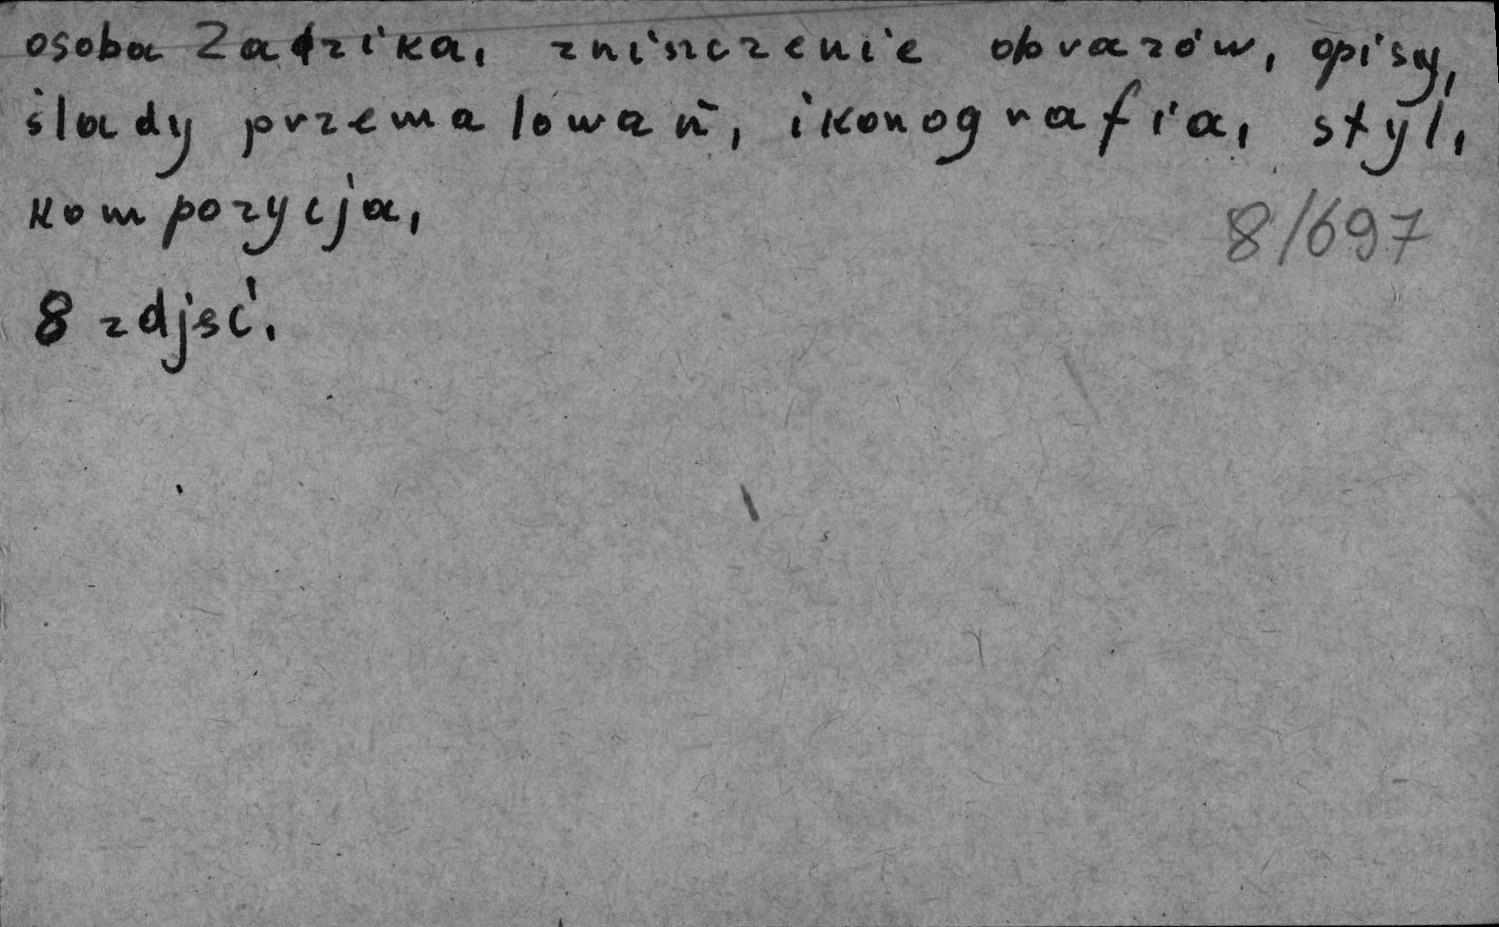 osoba Zadzika, zniszczenie obrazów, opisy,
ślady przemalowań, ikonografia, styl,
kompozycja,
8/697
8 zdjęć.